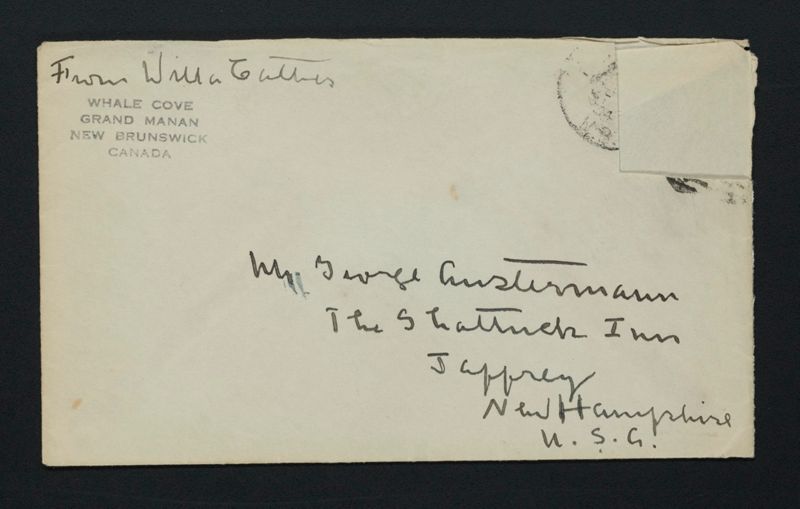 From Willa Cather
WHALE COVE
GRAND MANAN
NEW BRUNSWICK
CANADA
Mr. George Austermann
The Shattuck Inn
Jaffrey
New Hampshire
U. S. A.